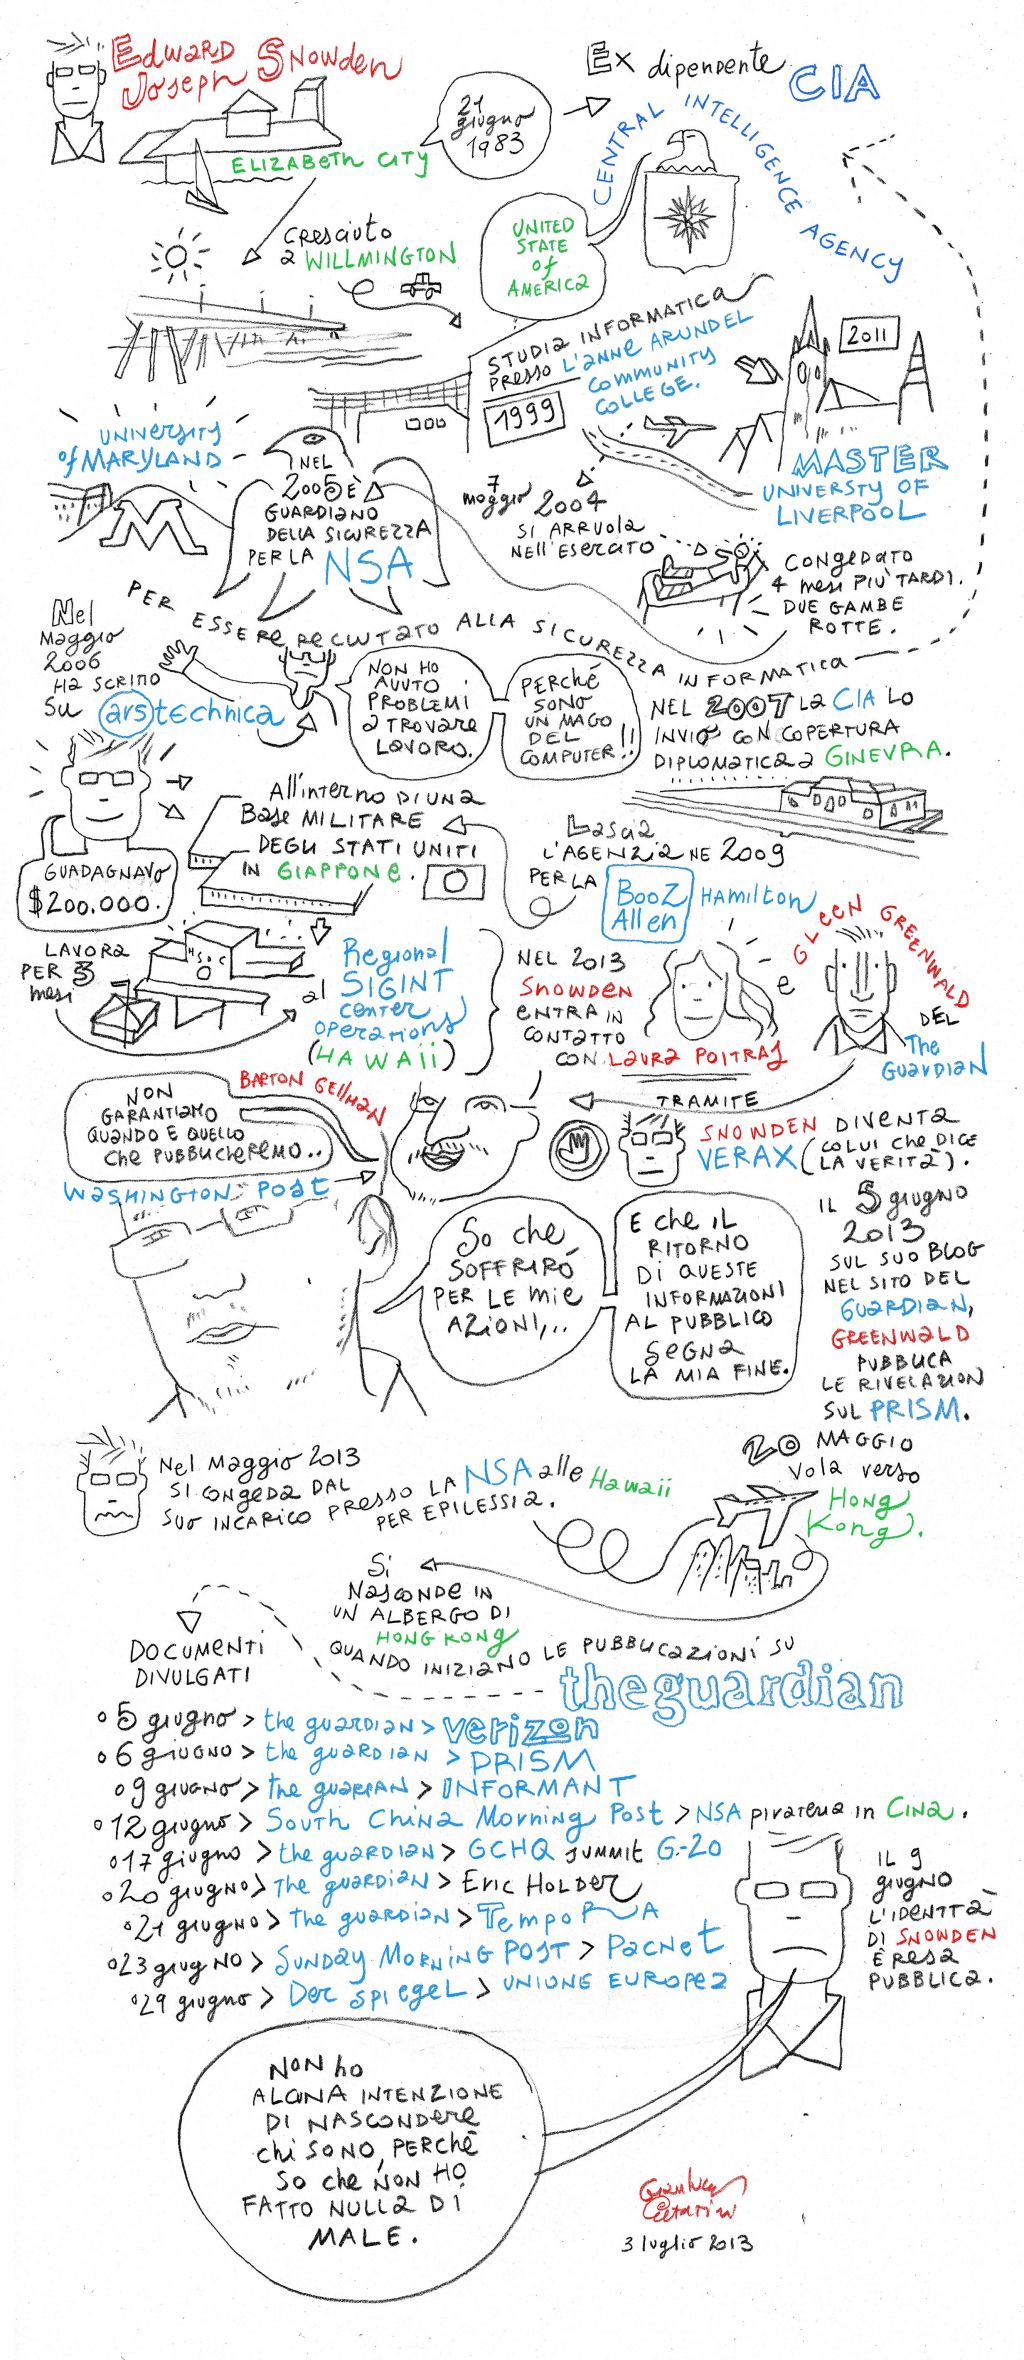 Edward
Joseph Snowden
ELIZABETH CITY
21
giugno
1983
Ex dipendente
CIA
CENTRAL INTELLIGENCE AGENCY
UNITED
STATE
of
AMERICA
cresciuto
a WILLMINGTON
STUDIA INFORMATICA
PRESSO L'ANNE ARUNDEL
COMMUNITY
COLLEGE.
1999
2011
MASTER
UNIVERSTY OF
LIVERPOOL
UNIVERSITY
of MARYLAND
M
NEL
2005 È
GUARDIANO
DELLA SICUREZZA
PER LA NSA
7
maggio 2004
SI ARRUOLA
NELL'ESERCITO
CONGEDATO
4 mesi PIÙ TARDI.
DUE GAMBE
ROTTE.
PER ESSERE RECLUTATO ALLA SICUREZZA INFORMATICA
Nel
Maggio
2006
HA SCRITTO
SU arstechnica
NON HO
AVUTO
PROBLEMI
A TROVARE
LAVORO.
PERCHÉ
SONO
UN MAGO
DEL
COMPUTER!!
NEL 2007 LA CIA LO
INVIÒ CON COPERTURA
DIPLOMATICA A GINEVRA.
GUADAGNAVO
$200.000.
All'INTERNO DI UNA
Base MILITARE
DEGLI STATI UNITI
IN GIAPPONE.
Lascia
L'AGENZIA NE 2009
PER LA BOOZ HAMILTON
Allen
LAVORA
PER 3
mesi
al
Regional
SIGINT
center
operations
(HAWAii)
NEL 2013
SNOWDEN
ENTRA IN
CONTATTO
CON LAURA POITRAS
e
GLEEN GREENWALD
DEL
The
GUARDIAN
TRAMITE
NON
GARANTIAMO
QUANDO E QUELLO
che PUBBLICHEREMO..
BARTON GEllMAN
WASHINGTON POST
SNOWDEN DIVENTA
VERAX (COLUI CHE DICE
LA VERITÀ).
So che
SOFFRIRÒ
PER LE MIE
AZIONI,..
E CHE IL
RITORNO
DI QUESTE
INFORMAZIONI
AL PUBBLICO
SEGNA
LA MIA FINE.
IL 5 giugno
2013
SUL SUO BLOG
NEL SITO DEL
GUARDIAN,
GREENWALD
PUBBLICA
LE RIVELAZIONI
SUL PRISM.
Nel Maggio 2013
SI CONGEDA DAL
SUO INCARICO PRESSO LA NSA alle Hawaii
PER EPILESSIA.
20 MAGGIO
Vola verso
Hong
Kong.
Si
NASCONDE IN
UN ALBERGO DI
HONG KONG
QUANDO INIZIANO LE PUBBLICAZIONI SU
theguardian
DOCUMENTI
DIVULGATI
° 5 giugno > the GUARDIAN > verizon
° 6 giugno > the GUARDIAN > PRISM
° 9 giugno > the GUARIAN > INFORMANT
° 12 giugno > South China Morning Post > NSA pirateria in CINA.
° 17 giugno > the GUARDIAN > GCHQ summit G-20
° 20 giugno > The GUARDIAN > Eric HOLDER
° 21 giugno > The guardian > TempoRA
° 23 giugno > SUNDAY MORNING POST > PACNET
° 29 giugno > Der SPIEGEL > UNIONE EUROPEA
IL 9
giugno
L'IDENTITÀ
DI SNOWDEN
È RESA
PUBBLICA.
NON ho
ALCUNA INTENZIONE
DI NASCONDERE
chi SONO, PERCHÉ
SO che NON HO
FATTO NULLA DI
MALE.
3 luglio 2013